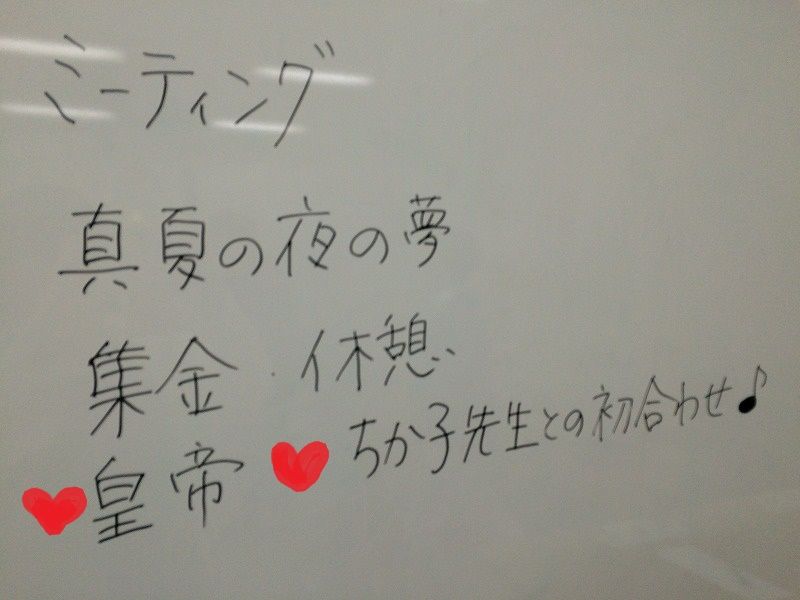 ミーティング
真夏の夜の夢
集金・休憩
♥皇帝♥ ちか子先生との初合わせ♪